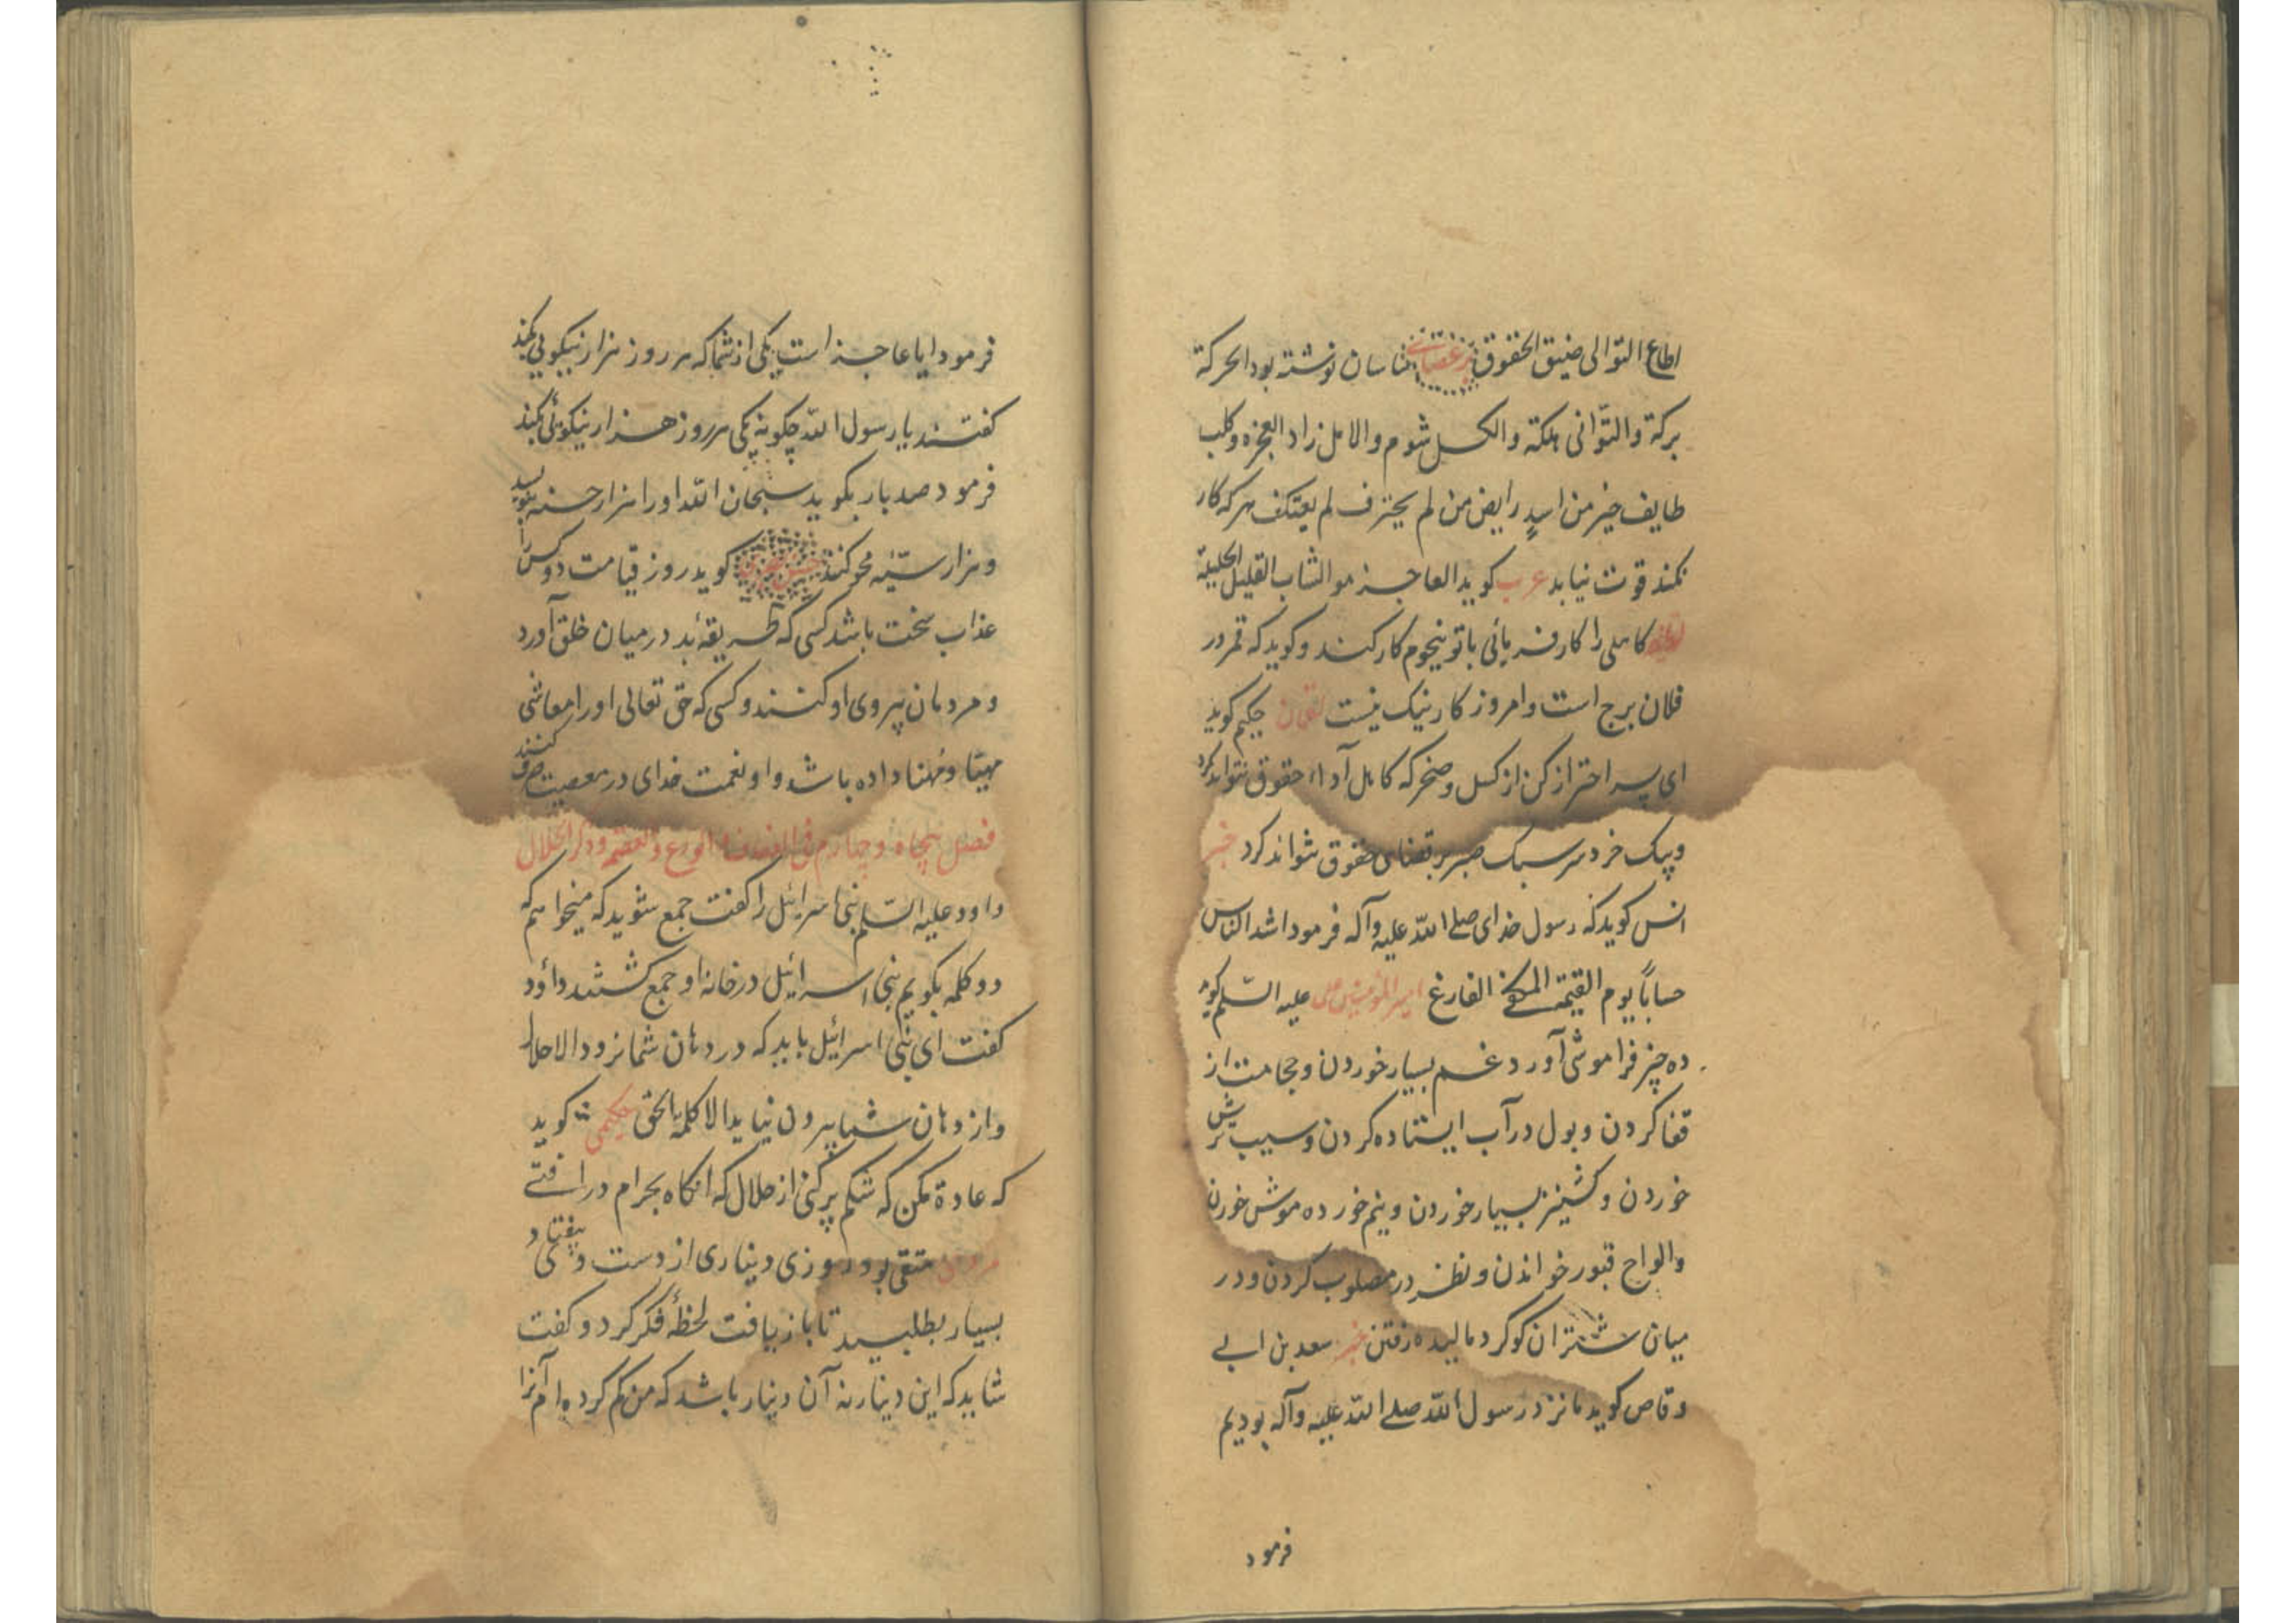 اطاع التوالی ضیق الحقوق بر عصای ساسان نوشته بود الحرکة
برکة والتّوانی هلکة والکسل شوم والامل زاد العجزه وکلب
طایف خیر من اسدٍ رابض من لم یحترف لم یعتکف هر که کار
نکند قوت نیابد عرب کوید العاجز هو الشاب القلیل الحیلة
کاهلی را کار فرمائی با تو بنجوم کار کند وکوید که قمر در
فلان برج است وامروز کار نیک نیست لقمان حکیم کوید
ای پسر احتراز کن از کسل وضجر که کاهل آداء حقوق نتواند کرد
وسبک خرد سر سبک صبر بر قضای حقوق نتواند کرد خبر
انس کوید که رسول خدای صلے الله علیه وآله فرمود اشد الناس
حساباً یوم القیمة المکفے الفارغ امیر المؤمنین علی علیه السّلم کوید
ده چیز فراموشی آورد غم بسیار خوردن وحجامت از
قفا کردن وبول در آب ایستاده کردن وسیب ترش
خوردن وکشنیز بسیار خوردن ونیم خورده موش خوردن
والواح قبور خواندن ونظر در مصلوب کردن ودر
میان شتران کوکرد مالیده رفتن خبر سعد بن ابے
وقاص کوید ما نزد رسول الله صلے الله علیه وآله بودیم
فرمود
فرمود ایا عاجز است یکی از شما که هر روز هزار نیکویی کند
کفتند یا رسول الله چکونه یکی هر روز هزار نیکوئی کند
فرمود صد بار بکوید سبحان الله او را هزار حسنه بنویسد
وهزار سیّئه محو کنند حسن بصری کوید روز قیامت دو کس را
عذاب سخت باشد کسی که طریقهٔ بد در میان خلق آورد
ومردمان پیروی او کنند وکسی که حق تعالی او را معاشی
مهیّا ومُهنا داده باشد واو نعمت خدای در معصیت صرف کنند
فصل پنجاه وچهارم فی العفة والورع والعصمة وذکر الحلال
داود علیه السّلم بنی اسرائیل را کفت جمع شوید که میخواهم که
دو کلمه بکویم بنی اسرائیل در خانه او جمع کشتند داؤد
کفت ای بنی اسرائیل باید که در دهان شما نرود الا حلال
واز دهان شما بیرون نیاید الا کلمة الحق حکیمی کوید
که عادة مکن که شکم پر کنی از حلال که انکاه بحرام در افتے
مردی متقی بود روزی دیناری از دست وی بیفتاد
بسیار بطلبید تا باز یافت لحظهٔ فکر کرد وکفت
شاید که این دینار نه آن دینار باشد که من کم کرده ام آنرا